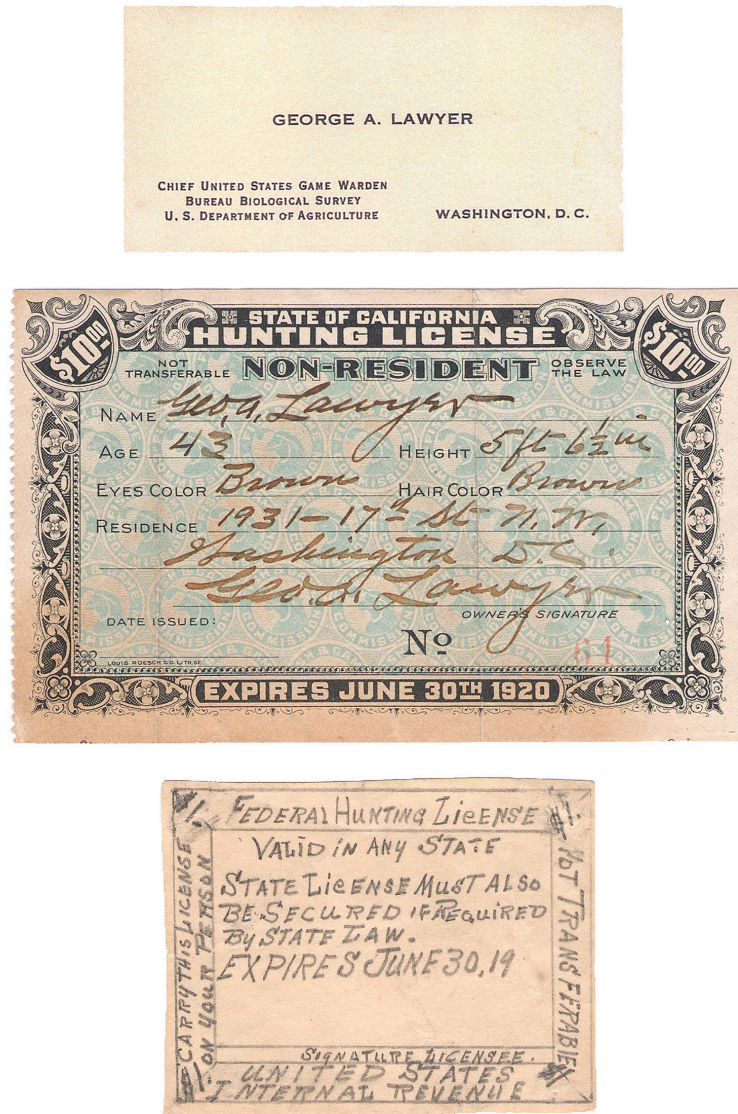 GEORGE A. LAWYER
CHIEF UNITED STATES GAME WARDEN
BUREAU BIOLOGICAL SURVEY
U. S. DEPARTMENT OF AGRICULTURE
WASHINGTON, D. C.
$10.00
STATE OF CALIFORNIA
HUNTING LICENSE
$10.00
NOT TRANSFERABLE
NON-RESIDENT
OBSERVE THE LAW
NAME Geo. A. Lawyer
AGE 43 HEIGHT 5 ft 6 1/2 in
EYES COLOR Brown HAIR COLOR Brown
RESIDENCE 1931-17th St N.W.,
Washington D.C.
Geo. A. Lawyer
OWNER'S SIGNATURE
DATE ISSUED:
No 61
LOUIS ROESCH CO. LITH. SF.
EXPIRES JUNE 30TH 1920
$1.
FEDERAL HUNTING LICENSE
VALID IN ANY STATE
STATE LICENSE MUST ALSO
BE SECURED IF REQUIRED
BY STATE LAW.
EXPIRES JUNE 30, 19
CARRY THIS LICENSE
ON YOUR PERSON
NOT TRANSFERABLE
SIGNATURE LICENSEE.
UNITED STATES
INTERNAL REVENUE